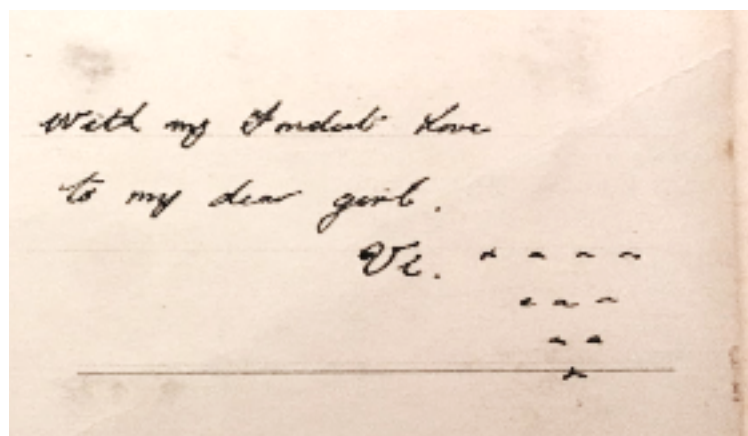 With my Fondest Love
to my dear girl.
Vi. x x x x
x x x
x x
x